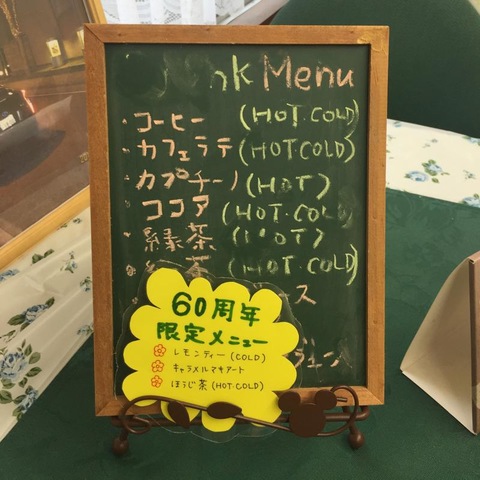 Menu
・コーヒー (HOT.COLD)
・カフェラテ (HOT.COLD)
・カプチーノ (HOT)
ココア (HOT.COLD)
・緑茶 (HOT)
茶 (HOT.COLD)
ース
60周年
限定メニュー
レモンティー(COLD)
キャラメルマキアート
ほうじ茶(HOT・COLD)